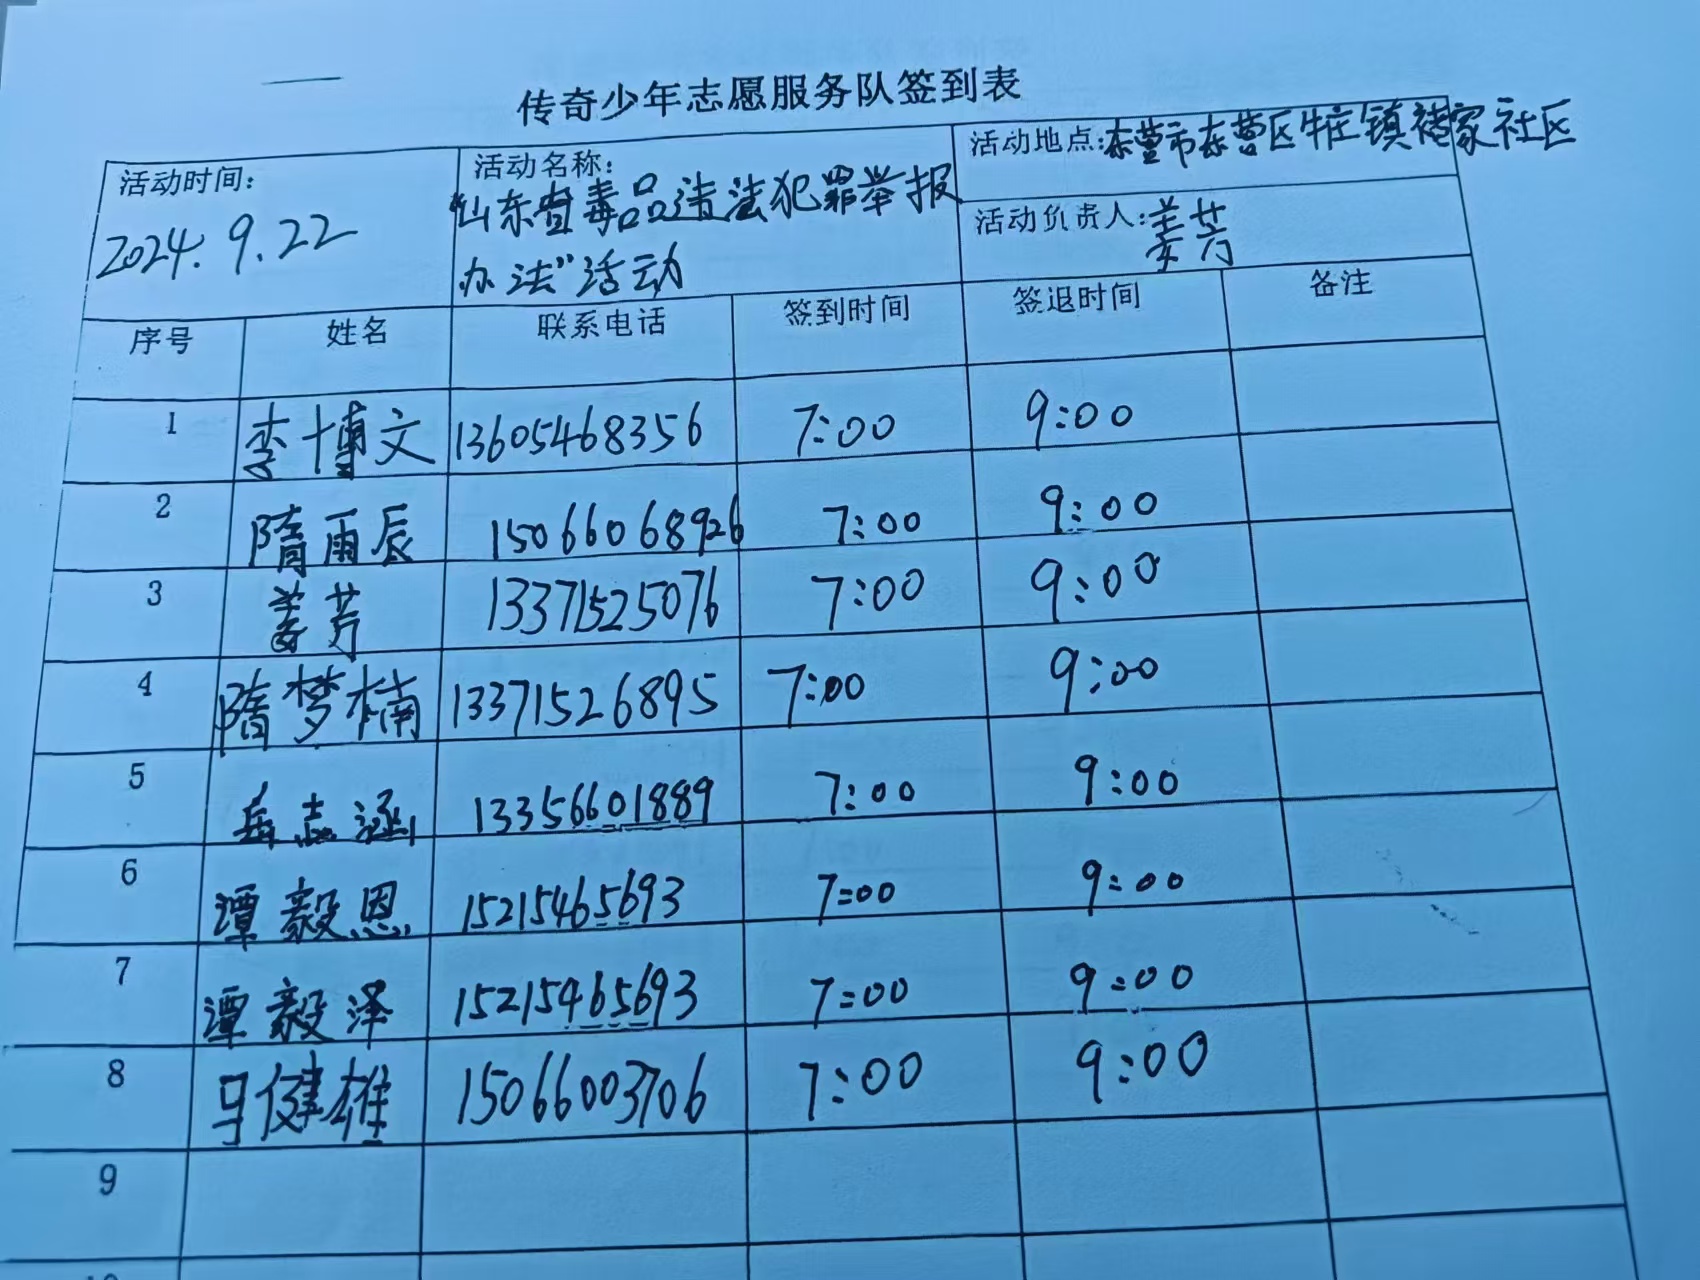 传奇少年志愿服务队签到表
活动时间：
2024.9.22
活动名称：
“山东省毒品违法犯罪举报
办法”活动
活动地点：东营市东营区牛庄镇褚家社区
活动负责人：姜芳
序号 姓名 联系电话 签到时间 签退时间 备注
1 李博文 13605468356 7:00 9:00
2 隋雨辰 15066068926 7:00 9:00
3 姜芳 13371525076 7:00 9:00
4 隋梦楠 13371526895 7:00 9:00
5 岳志涵 13356601889 7:00 9:00
6 谭毅恩 15215465693 7:00 9:00
7 谭毅泽 15215465693 7:00 9:00
8 马健雄 15066003706 7:00 9:00
9